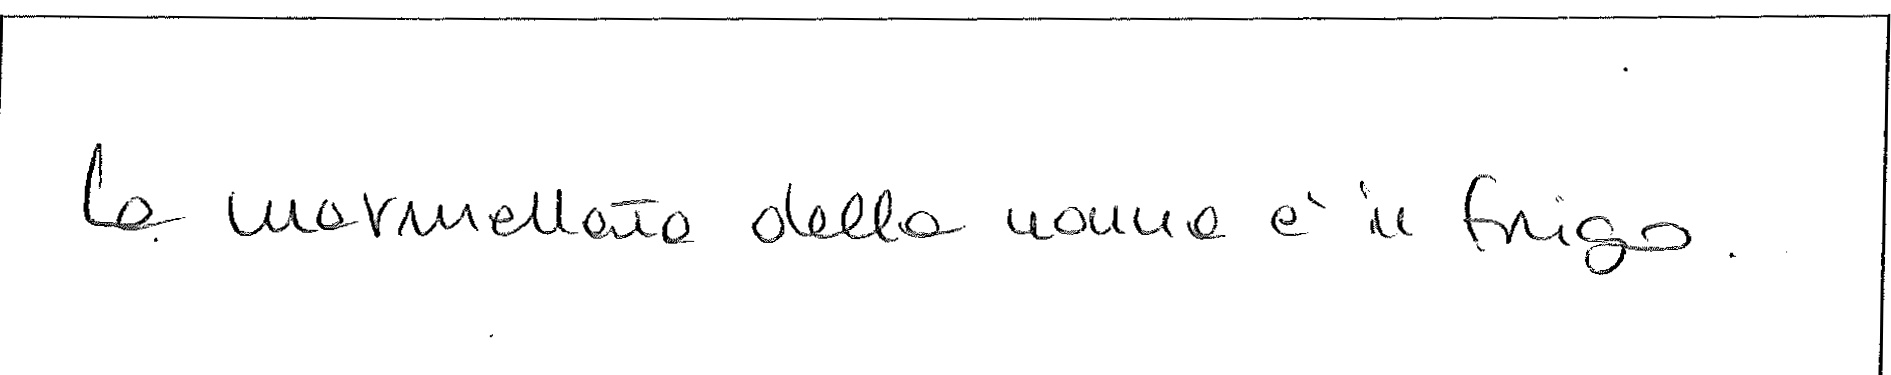 La marmellata della nonna è in frigo.